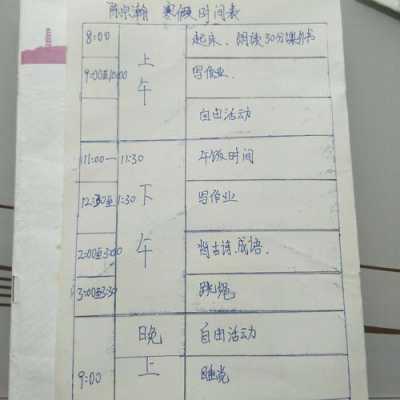 寒假时间表
8:00 上 起床、朗读30分课外书
9:00至10:00 午 写作业.
自由活动
11:00—11:30 午饭时间
12:30至1:30 下 写作业
2:00至3:00 午 背古诗.成语.
3:00至3:30 跳绳
晚 自由活动
9:00 上 睡觉